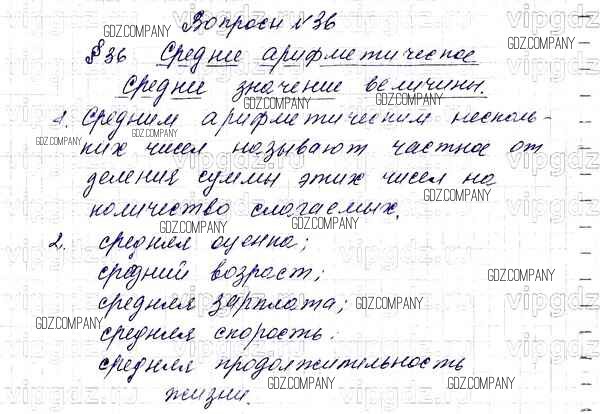 Вопросы №36
§36 Среднее арифметическое.
Среднее значение величины.
1. Средним арифметическим несколь-
ких чисел называют частное от
деления суммы этих чисел на
количество слагаемых.
2. средняя оценка;
средний возраст;
средняя зарплата;
средняя скорость.
средняя продолжительность
жизни.